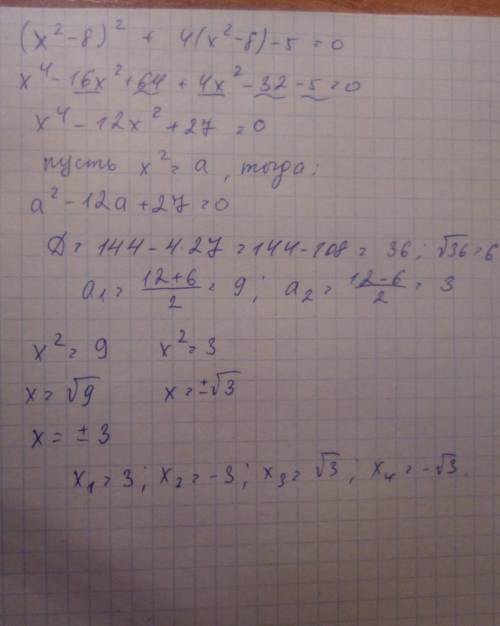 (x²-8)² + 4(x²-8)-5=0
x⁴-16x²+64+4x²-32-5=0
x⁴-12x²+27=0
пусть x²=a, тогда:
a²-12a+27=0
D=144-4·27=144-108=36; √36=6
a₁=(12+6)/2=9; a₂=(12-6)/2=3
x²=9 x²=3
x=√9 x=±√3
x=±3
x₁=3; x₂=-3; x₃=√3; x₄=-√3.